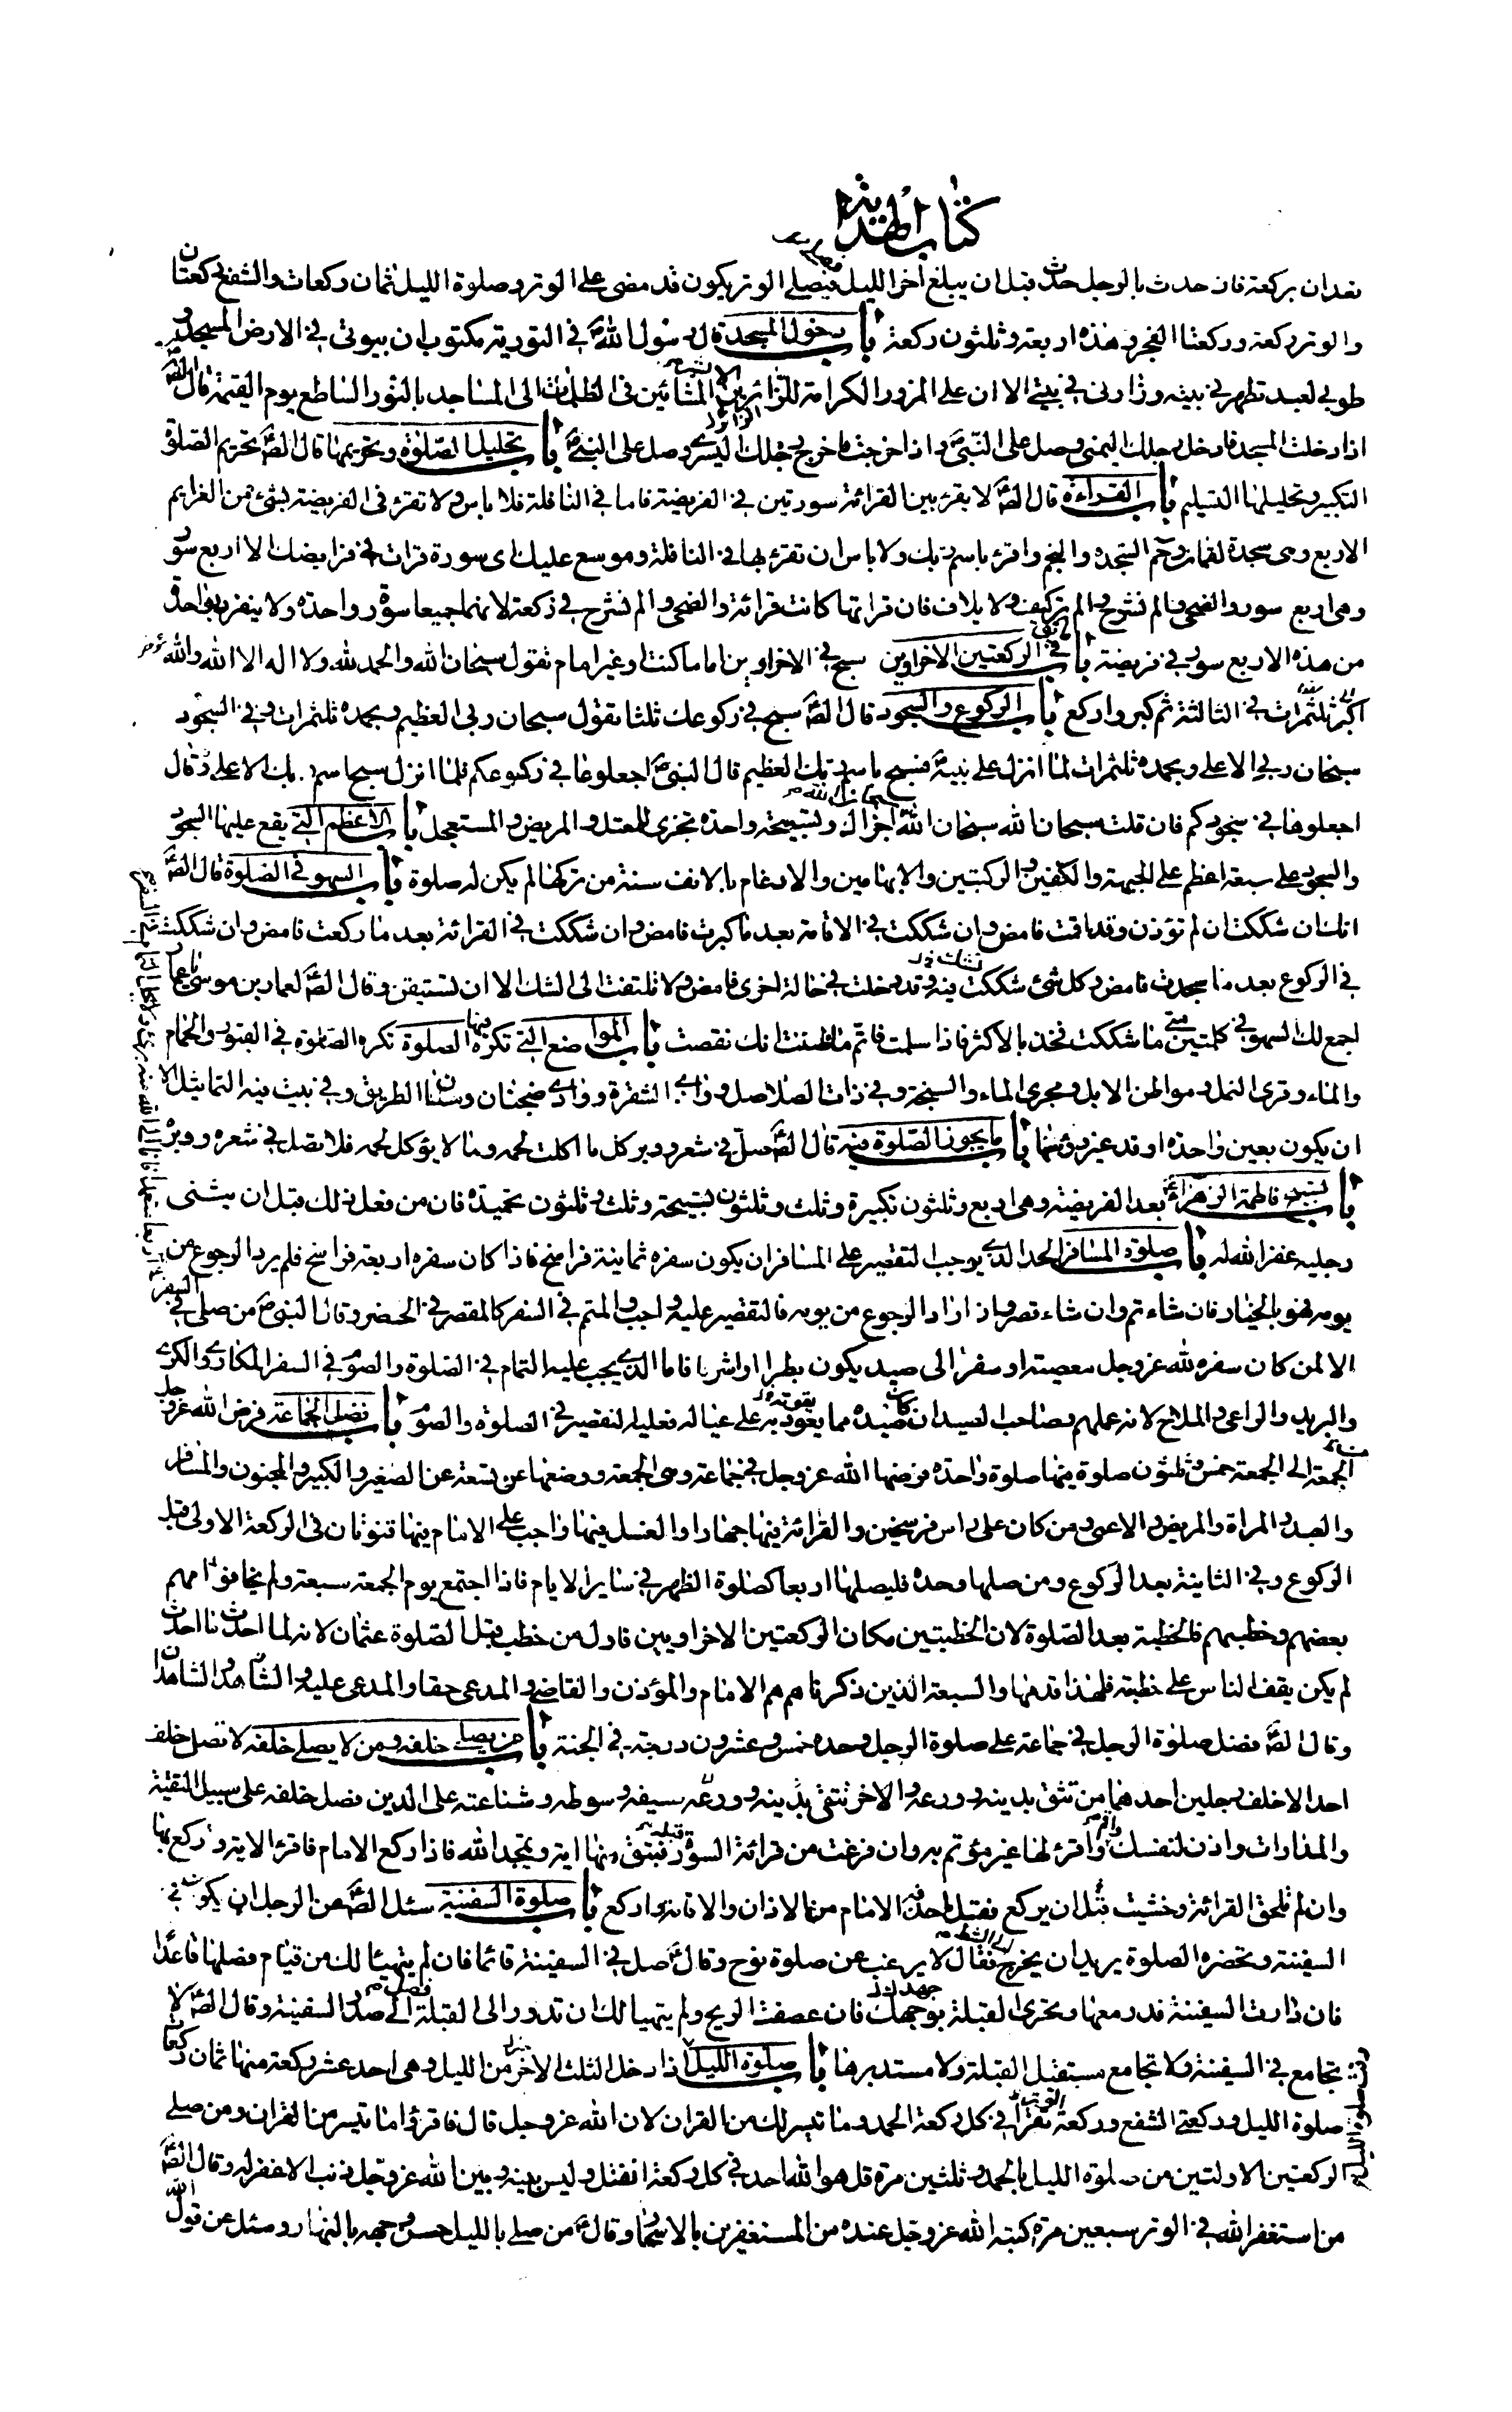 كتاب الهداية
تعدان بركعة فان حدث بالرجل حدث قبل ان يبلغ اخر الليل فيصلي الوتر يكون قد مضى على الوتر وصلوة الليل ثمان ركعات والشفع ركعتان
والوتر ركعة وركعتا الفجر فهذه اربعة وثلثون ركعة باب دخول المسجد قال رسول الله ص في التورية مكتوب ان بيوتي في الارض المساجد
طوبى لعبد تطهر في بيته وزارني في بيتي الا ان على المزور الكرامة للزائرين الا بشر المشائين في الظلمات الى المساجد بالنور الساطع يوم القيمة قال الص
اذا دخلت المسجد فادخل رجلك اليمنى وصل على النبي ص واذا خرجت فاخرج رجلك اليسرى وصل على النبي ص باب تحليل الصلوة وتحريمها قال الص تحريم الصلوة
التكبير وتحليلها التسليم باب القراءة قال الص لا يقرء بين القرائة سورتين في الفريضة فاما في النافلة فلا باس ولا تقرء في الفريضة بشئ من العزايم
الاربع وهى سجدة لقمان وحم السجدة والنجم واقرء باسم ربك ولا باس ان تقرء بها في النافلة وموسع عليك اى سورة قرات في فرايضك الا اربع سور
وهى اربع سور والضحى والم نشرح والم تر كيف ولايلاف فان قراتها كانت قرائة والضحى والم نشرح في ركعة لانهما جميعا سورة واحدة ولا ينفرد بواحدة
من هذه الاربع سور في فريضة باب في الركعتين الاخراوين سبح في الاخراوين اماما كنت او غير امام تقول سبحان الله والحمد لله ولا اله الا الله والله
اكبر ثلث مرات في الثالثة ثم كبر واركع باب الركوع والسجود قال الص سبح في ركوعك ثلثا تقول سبحان ربى العظيم وبحمده ثلث مرات وفي السجود
سبحان ربي الاعلى وبحمده ثلث مرات لما انزل على نبيه فسبح باسم ربك العظيم قال النبي ص اجعلوها في ركوعكم فلما انزل سبح اسم ربك الاعلى قال
اجعلوها في سجودكم فان قلت سبحان الله سبحان الله سبحان الله اجزاك وتسبيحة واحدة تجزى للمعتل والمريض والمستعجل باب الاعظم التي يقع عليها السجود
والسجود على سبعة اعظم على الجبهة والكفين والركبتين والابهامين والارغام بالانف سنة من تركها لم يكن له صلوة باب السهو في الصلوة قال الص
انك ان شككت ان لم تؤذن وقد اقمت فامض وان شككت في الاقامة بعد ما كبرت فامض وان شككت في القرائة بعد ما ركعت فامض وان شككت
في الركوع بعد ما سجدت فامض وكل شئ شككت فيه وقد دخلت في حالة اخرى فامض ولا تلتفت الى الشك الا ان تستيقن وقال الص لعمار بن موسى يا عمار
اجمع لك السهو في كلمتين متى ما شككت فخذ بالاكثر فاذا سلمت فاتم ما ظننت انك نقصت باب المواضع التي تكره فيها الصلوة تكره الصلوة في القبور والحمام
والماء وقرى النمل ومواطن الابل ومجرى الماء والسبخة وفي ذات الصلاصل ووادى الشقرة ووادى ضجنان ومسان الطريق وفي بيت فيه التماثيل الا
ان يكون بعين واحدة او قد غير رؤسها باب ما يجوز الصلوة فيه قال الص صل في شعر ووبر كل ما اكلت لحمه وما لا يؤكل لحمه فلا تصل في شعره ووبره
باب تسبيح فاطمة الزهراء بعد الفريضة وهى اربع وثلثون تكبيرة وثلث وثلثون تسبيحة وثلث وثلثون تحميدة فان من فعل ذلك قبل ان يثنى
رجليه غفر الله له باب صلوة المسافر الحد الذي يوجب التقصير على المسافر ان يكون سفره ثمانية فراسخ فاذا كان سفره اربعة فراسخ فلم يرد الرجوع من
يومه فهو بالخيار فان شاء تم وان شاء قصر وان اراد الرجوع من يومه فالتقصير عليه واجب والمتم في السفر كالمقصر في الحضر وقال النبي ص من صلى في السفر
الا لمن كان سفره لله عز وجل معصية او سفرا الى صيد يكون بطرا او اشرا فاما الذي يجب عليه التمام في الصلوة والصوم في السفر المكارى والكرى
والبريد والراعى والملاح لانه عملهم وصاحب الصيد ان كان صيده مما يعود به على عياله فعليه التقصير في الصلوة والصوم باب فضل الجماعة فرض الله عز وجل
من الجمعة الى الجمعة خمس وثلثون صلوة فيها صلوة واحدة فرضها الله عز وجل في جماعة وهى الجمعة ووضعها عن تسعة عن الصغير والكبير والمجنون والمسافر
والعبد والمراة والمريض والاعمى ومن كان على راس فرسخين والقرائة فيها جهارا والغسل فيها واجب على الامام فيها قنوتان في الركعة الاولى قبل
الركوع وفي الثانية بعد الركوع ومن صلها وحده فليصلها اربعا كصلوة الظهر في ساير الايام فاذا اجتمع يوم الجمعة سبعة ولم يخافوا امهم
بعضهم وخطبهم فالخطبة بعد الصلوة لان الخطبتين مكان الركعتين الاخراوين فاول من خطب قبل الصلوة عثمان لانه لما احدث ما احدث
لم يكن يقف الناس على خطبته فلهذا قدمها والسبعة الذين ذكرناهم هم الامام والمؤذن والقاضى والمدعى حقا والمدعى عليه والشاهدان
وقال الص فضل صلوة الرجل في جماعة على صلوة الرجل وحده خمس وعشرون درجة في الجنة باب من يصلى خلفه ومن لا يصلى خلفه لا تصل خلف
احد الا خلف رجلين احدهما من تثق بدينه وورعه والاخر تتقى سيفه وسوطه وشناعته على الدين فصل خلفه على سبيل التقية
والمدارات واذن لنفسك واقم واقرء لها غير مؤتم به وان فرغت من قرائة السورة قبله فبق منها اية ومجد الله فاذا ركع الامام فاقرء الاية واركع بها
وان لم تلحق القرائة وخشيت ان يركع فقل ما حذفه الامام من الاذان والاقامة واركع باب صلوة السفينة سئل الص عن الرجل ان يكون في
السفينة وتحضره الصلوة يريد ان يخرج الى الشط فقال لا يرغب عن صلوة نوح وقال ص صل في السفينة قائما فان لم يتهيئا لك من قيام فصلها قاعدا
فان دارت السفينة فدر معها وتحرى القبلة بوجهك جهدك فان عصفت الريح ولم يتهيا لك ان تدور الى القبلة فصل الى صدر السفينة وقال الص لا
تجامع في السفينة ولا تجامع مستقبل القبلة ولا مستدبرها باب صلوة الليل اذا دخل الثلث الاخر من الليل وهى احد عشر ركعة منها ثمان ركعات
صلوة الليل وركعتى الشفع وركعة الوتر تقرا في كل ركعة الحمد وما تيسر لك من القران لان الله عز وجل قال فاقرؤا ما تيسر من القران ومن صلى
الركعتين الاولتين من صلوة الليل بالحمد وثلثين مرة قل هو الله احد في كل ركعة انفتل وليس بينه وبين الله عز وجل ذنب الا غفر له وقال الص
من استغفر الله في الوتر سبعين مرة كتبه الله عز وجل عنده من المستغفرين بالاسحار وقال ص من صلى بالليل حسن وجهه بالنهار وسئل عن قول الله